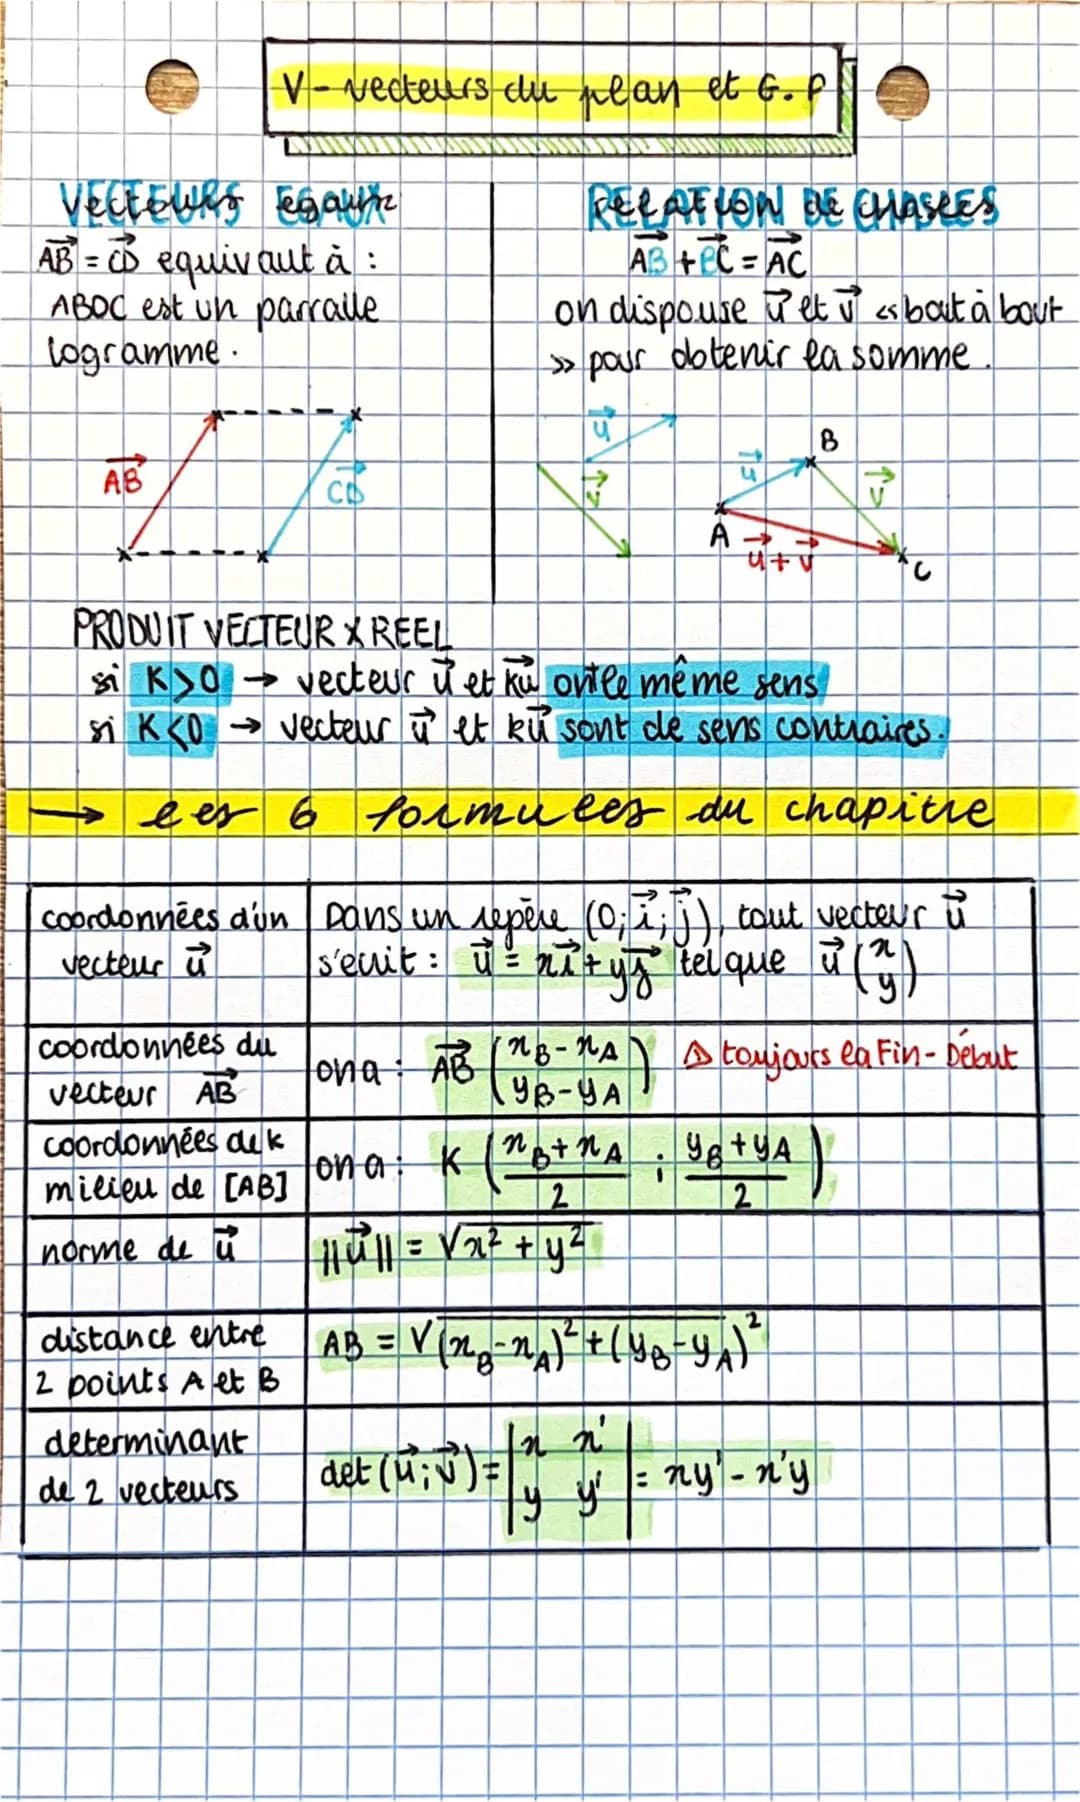 V - vecteurs du plan et G.P
VECTEURS EGAUX
AB⃗ = CD⃗ equivaut à :
ABDC est un parralle
logramme.
AB⃗
CD⃗
RELATION DE CHASLES
AB⃗ + BC⃗ = AC⃗
on dispouse u⃗ et v⃗ « bout à bout
» pour obtenir la somme.
u⃗
v⃗
A
u⃗
B
v⃗
u⃗ + v⃗
C
PRODUIT VECTEUR X REEL
si K>0 → vecteur u⃗ et ku⃗ ont le même sens
si K<0 → vecteur u⃗ et ku⃗ sont de sens contraires.
→ les 6 formules du chapitre
coordonnées d'un
vecteur u⃗
Dans un repère (O; i⃗; j⃗), tout vecteur u⃗
s'ecrit : u⃗ = xi⃗ + yj⃗ tel que u⃗ (x
y)
coordonnées du
vecteur AB⃗
on a : AB⃗ (xB - xA
yB - yA)
⚠ toujours la Fin - Début
coordonnées de k
milieu de [AB]
on a : K ((xB + xA)/2 ; (yB + yA)/2)
norme de u⃗
||u⃗|| = √x² + y²
distance entre
2 points A et B
AB = √(xB - xA)² + (yB - yA)²
determinant
de 2 vecteurs
det (u⃗; v⃗) = |x x'
y y'| = xy' - x'y